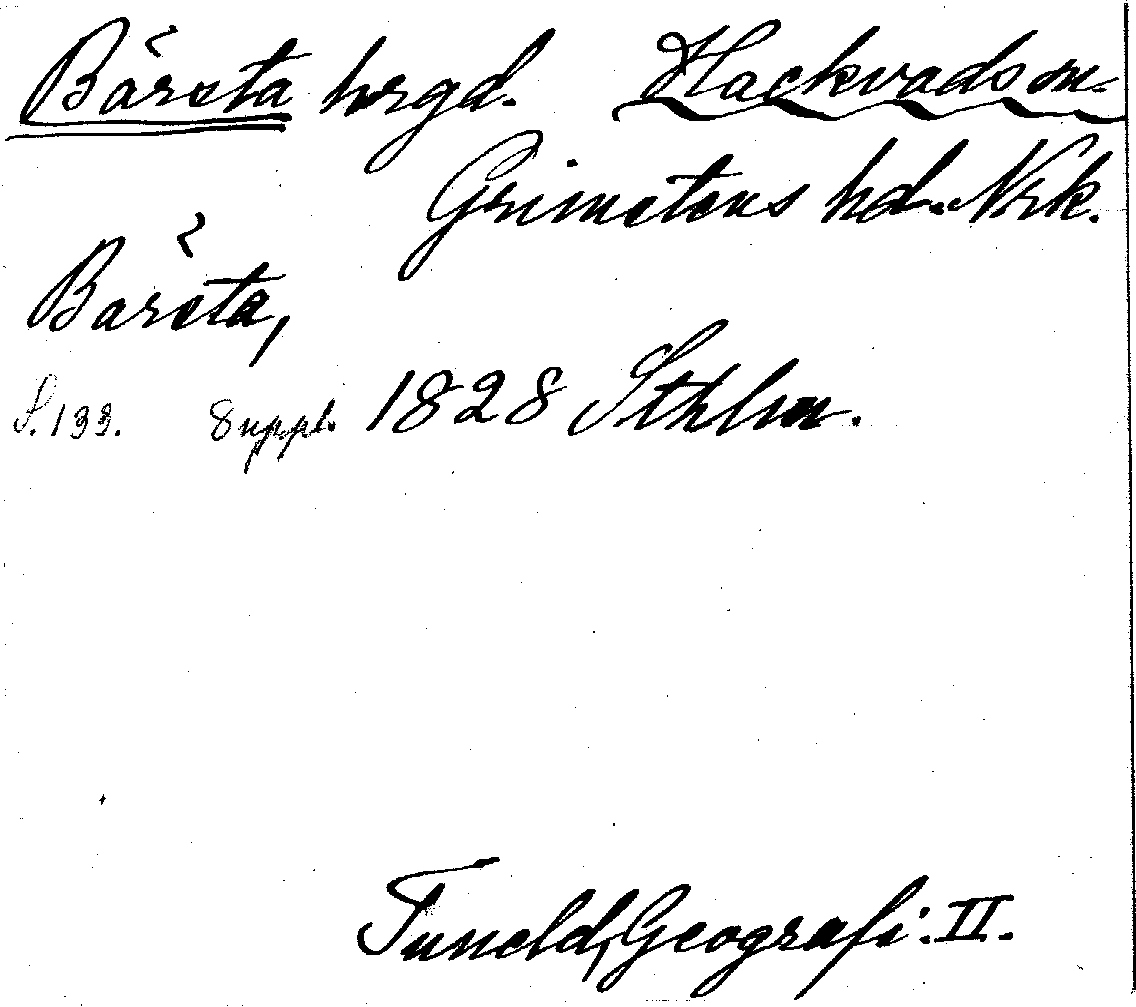 Bärsta hrgd. Hackvads sn.
Grimstens hd. Nrk.
Bärsta,
S. 133. Suppl. 1828 Sthlm.
Tuneld, Geografi. II.